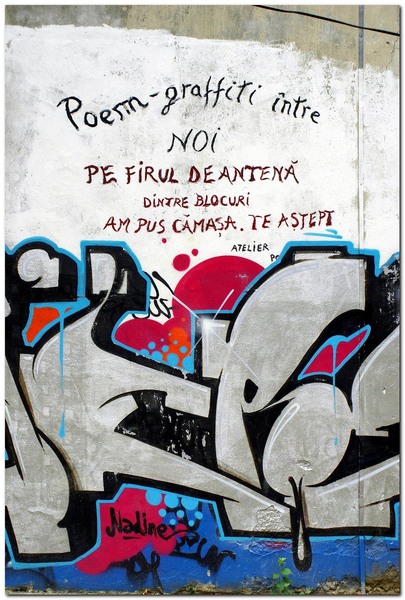 Poem-graffiti între
NOI
PE FIRUL DE ANTENĂ
DÎNTRE BLOCURI
AM PUS CĂMAȘA. TE AȘTEPT
ATELIER
Nadine